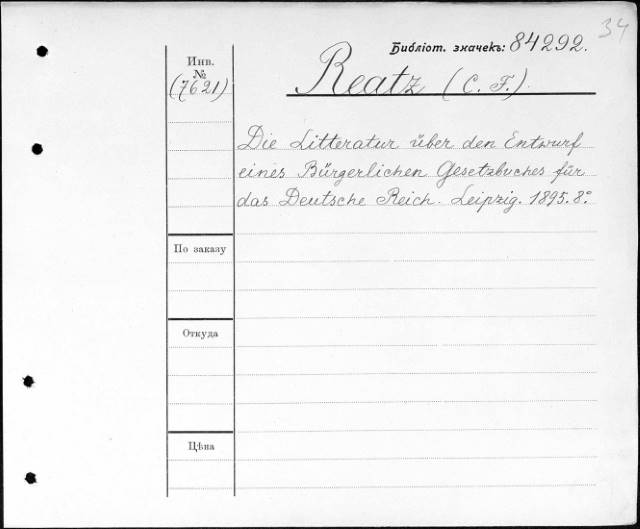 34
Библіот. значекъ: 84292.
Инв.
№
(7621)
Reatz (C. F.).
Die Litteratur über den Entwurf
eines Bürgerlichen Gesetzbuches für
das Deutsche Reich. Leipzig. 1895. 8°.
По заказу
Откуда
Цѣна